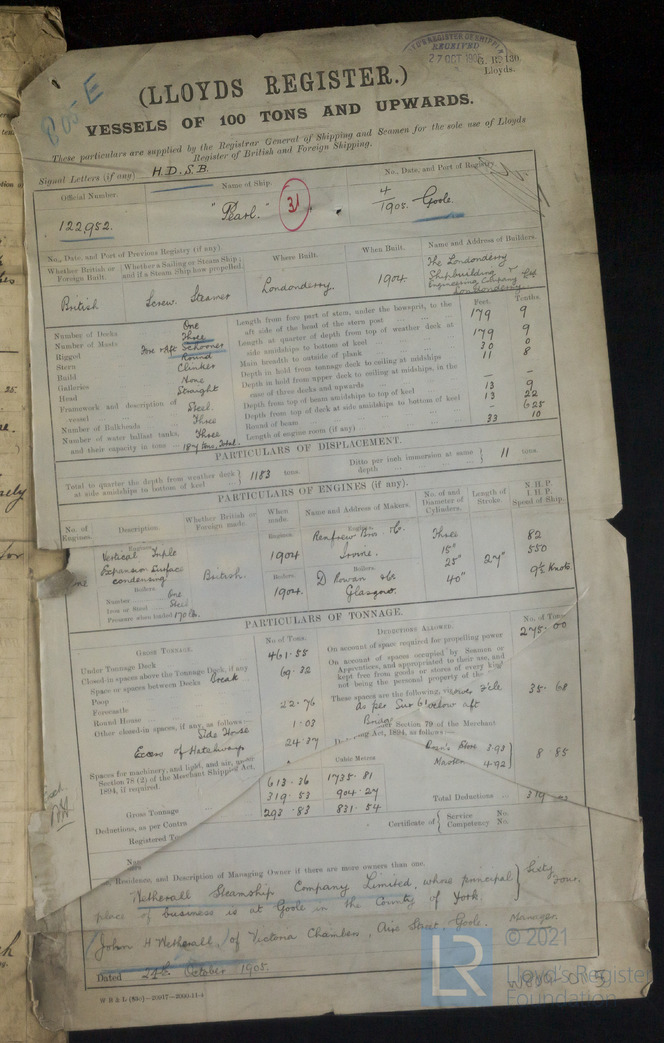 805 E
LLOYD'S REGISTER OF SHIPPING
RECEIVED
27 OCT 1905
G. R. 130.
Lloyds.
(LLOYDS REGISTER.)
VESSELS OF 100 TONS AND UPWARDS.
These particulars are supplied by the Registrar General of Shipping and Seamen for the sole use of Lloyds
Register of British and Foreign Shipping.
Signal Letters (if any) H.D.S.B.
Official Number. Name of Ship. No., Date, and Port of Registry.
122,952. "Pearl." 31 4/1905. Goole
No., Date, and Port of Previous Registry (if any).
Whether British or Foreign Built. Whether a Sailing or Steam Ship; and if a Steam Ship how propelled. Where Built. When Built. Name and Address of Builders.
British Screw Steamer Londonderry. 1904 The Londonderry Shipbuilding & Engineering Company Ltd Londonderry
Feet. Tenths.
Number of Decks One
Number of Masts Three
Rigged Fore & Aft Schooner
Stern Round
Build Clinker
Galleries None
Head Straight
Framework and description of vessel Steel.
Number of Bulkheads Three
Number of water ballast tanks, and their capacity in tons Three 187 tons. Total.
Length from fore part of stem, under the bowsprit, to the aft side of the head of the stern post 179 9
Length at quarter of depth from top of weather deck at side amidships to bottom of keel 179 9
Main breadth to outside of plank 30 0
Depth in hold from tonnage deck to ceiling at midships 11 8
Depth in hold from upper deck to ceiling at midships, in the case of three decks and upwards — —
Depth from top of beam amidships to top of keel 13 9
Depth from top of deck at side amidships to bottom of keel 13 22
Round of beam - 625
Length of engine room (if any) 33 10
PARTICULARS OF DISPLACEMENT.
Total to quarter the depth from weather deck at side amidships to bottom of keel 1183 tons
Ditto per inch immersion at same depth 11 tons
PARTICULARS OF ENGINES (if any).
No. of Engines. Description. Whether British or Foreign made. When made. Name and Address of Makers. No. of and Diameter of Cylinders. Length of Stroke. N. H. P. I. H. P. Speed of Ship.
Engines. Engines. Engines.
One Vertical Triple Expansion Surface condensing British. 1904 Renfrew Bros & Co. Irvine. Three 15" 25" 40" 27" 82 550 9½ Knots
Boilers. Boilers. Boilers.
Number One
Iron or Steel Steel
Pressure when loaded 170 lbs.
1904. D Rowan & Co Glasgow.
PARTICULARS OF TONNAGE.
GROSS TONNAGE. No. of Tons. DEDUCTIONS ALLOWED. No. of Tons.
Under Tonnage Deck 461.55
Closed-in spaces above the Tonnage Deck, if any
Space or spaces between Decks break 69.32
Poop
Forecastle 22.76
Round House
Other closed-in spaces, if any, as follows—
Side House 1.03
Excess of Hatchways 24.37
Spaces for machinery, and light, and air, under Section 78 (2) of the Merchant Shipping Act, 1894, if required.
On account of space required for propelling power 275.00
On account of spaces occupied by Seamen or Apprentices, and appropriated to their use, and kept free from goods or stores of every kind not being the personal property of the
These spaces are the following, 35.68
as per below aft
Section 79 of the Merchant
Act, 1894, as follows—
Bosn's Store 3.93
Master 4.92
8 85
Cubic Metres
Gross Tonnage 613.36 1735.81
Deductions, as per Contra 319.53 904.27
Registered 293.83 831.54
Total Deductions 319
Certificate of Service No.
Competency No.
Residence, and Description of Managing Owner if there are more owners than one.
Netherall Steamship Company Limited, whose principal
place of business is at Goole in the County of York. Sixty four.
John H Wetherall, of Victoria Chambers, Aire Street, Goole. Manager.
Dated 24th October 1905.
LR © 2021
Lloyd's Register
Foundation